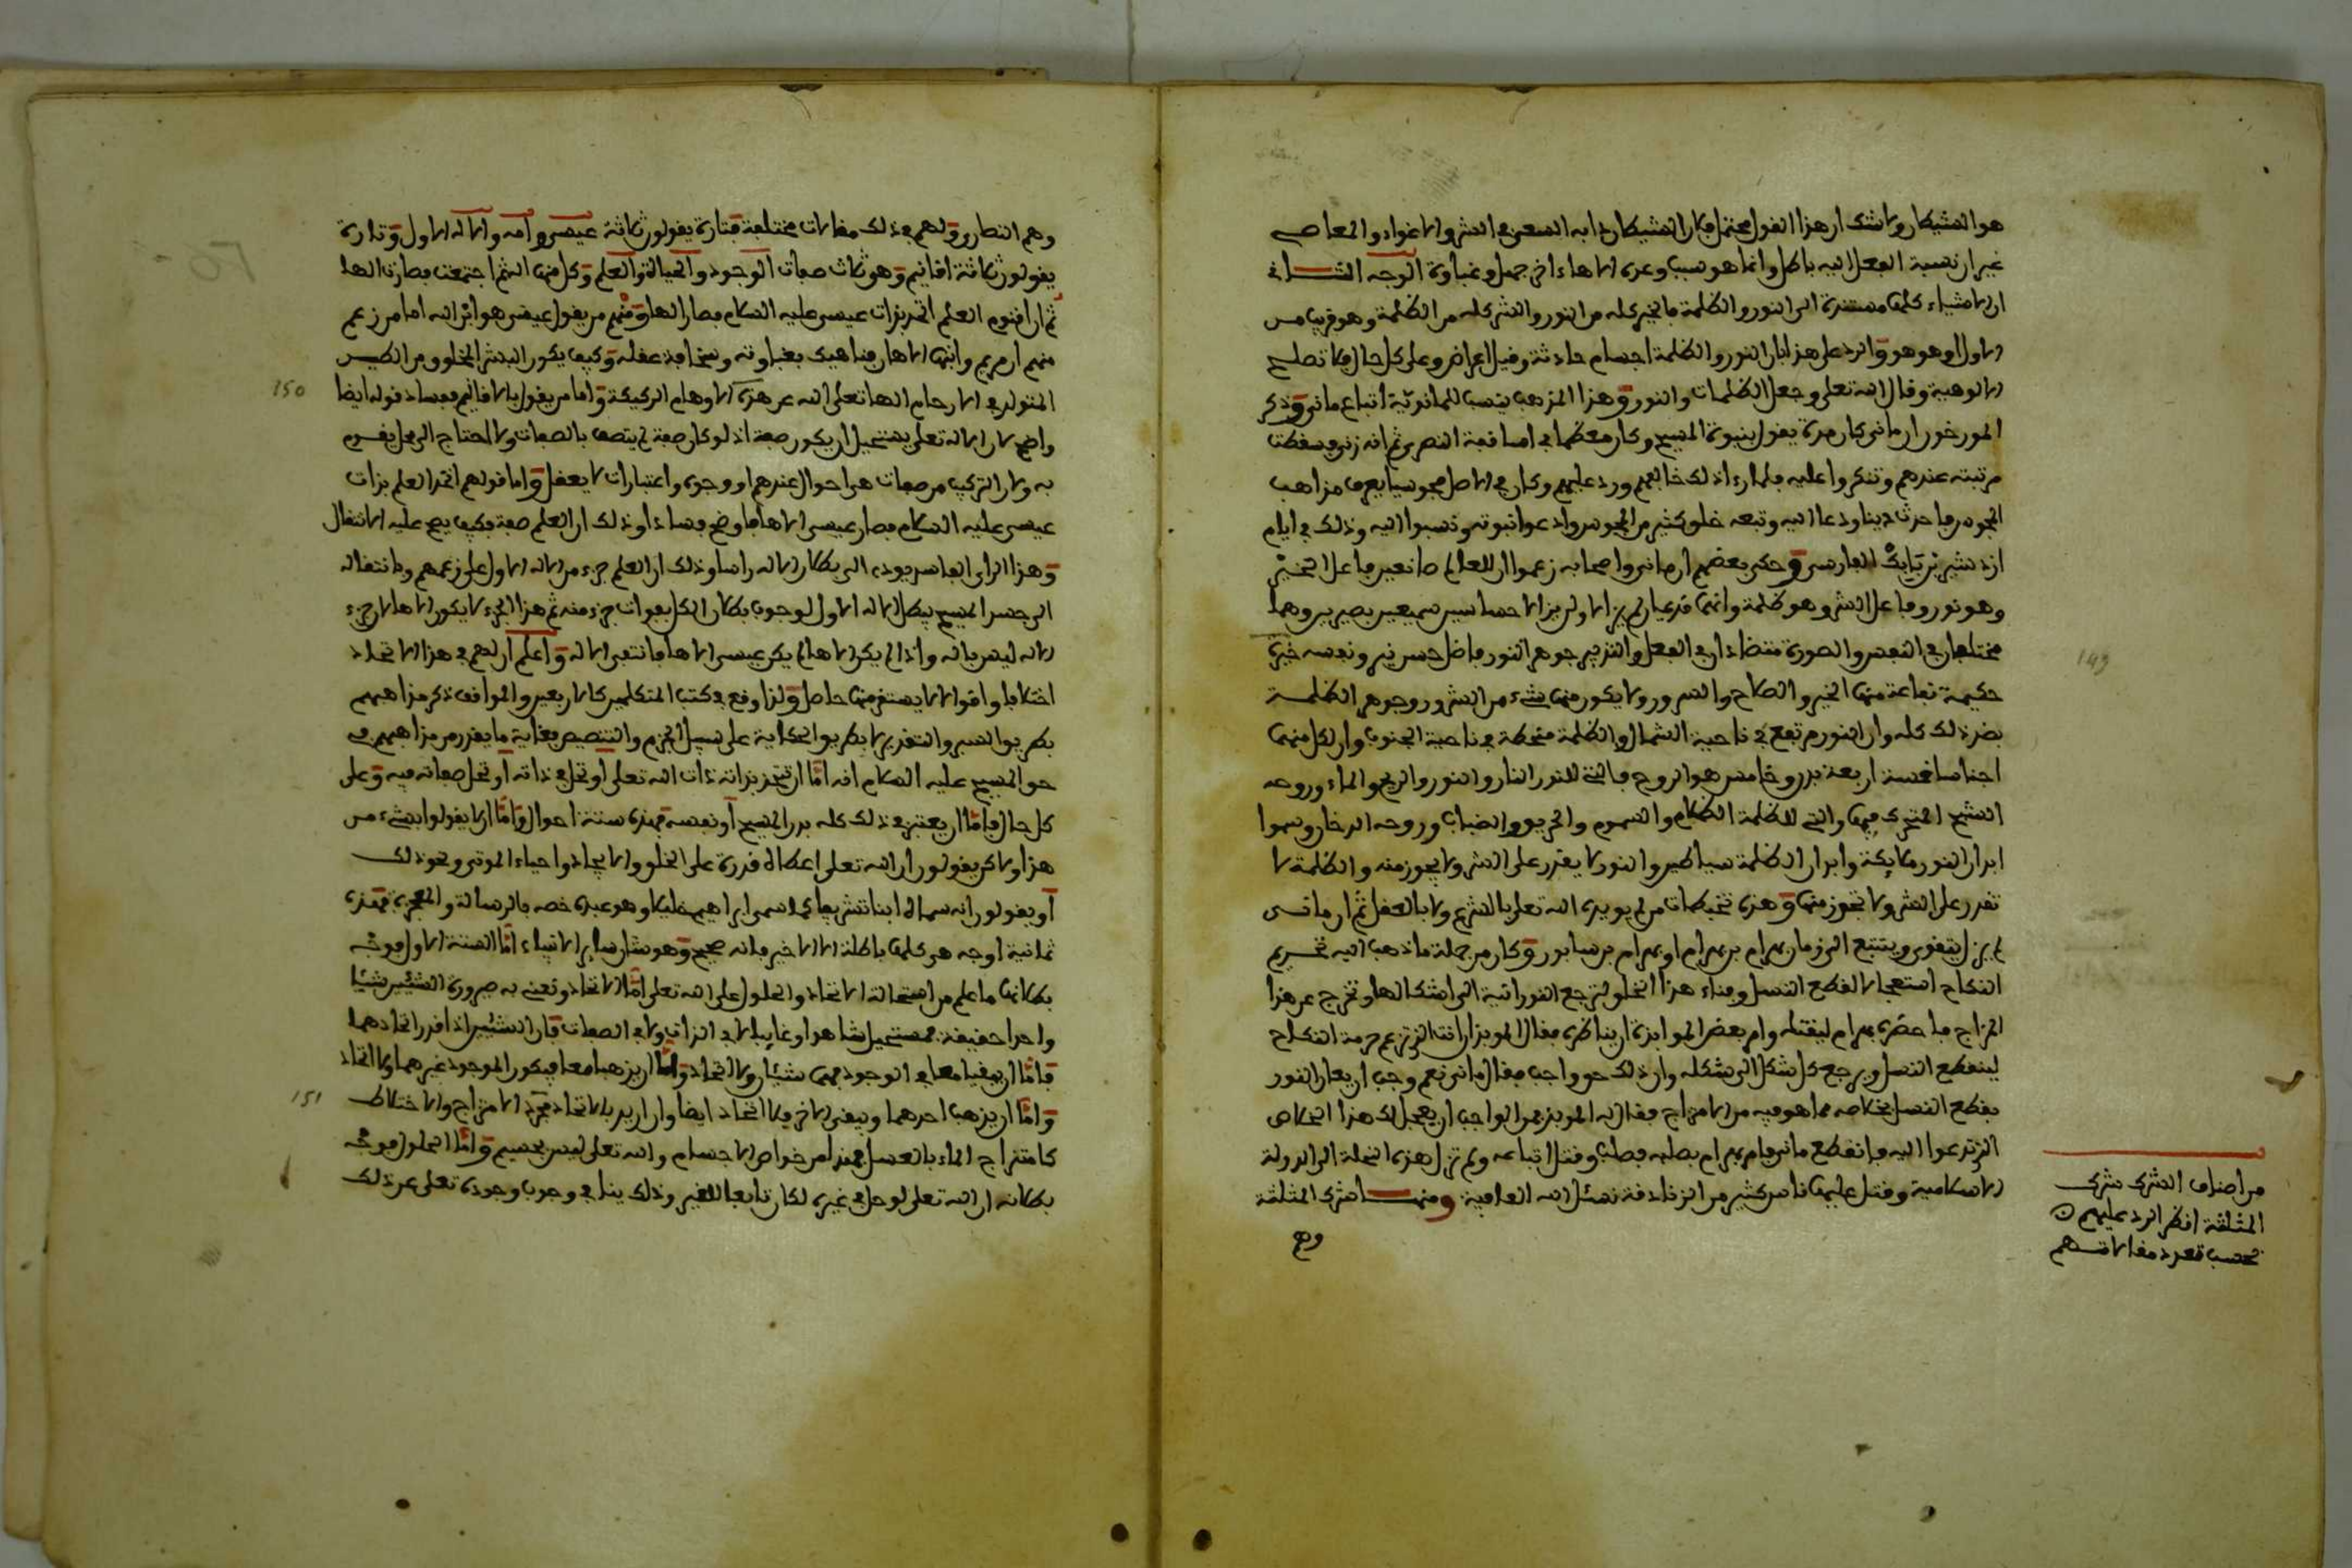 هو الشيطان ولا شك ان هذا القول محتمل فان الشيطان دابه السعي في الشر والاغواء والمعاصي
غير ان نسبة الفعل اليه باطل وانما هو سبب وعده الاها ءاخر جهل وغباوة الوجه الثاني
ان الاشياء كلها مستندة الى النور والظلمة فالخير كله من النور والشر كله من الظلمة وهو قريب من
الاول او هو هو والرد على هذا بان النور والظلمة اجسام حادثة وقيل اعراض وعلى كل حال فلا تصلح
للالوهية وقال الله تعلى وجعل الظلمات والنور وهذا المذهب ينسب للمانوية اتباع ماني وذكر
المورخون ان ماني كان مدة يقول بنبوة المسيح وكان معظما في اساقفة النصرى ثم انه زنى فسقطت
مرتبته عندهم وتنكروا عليه فلما رءا ذلك خالفهم ورد عليهم وكان في الاصل مجوسيا يعرف مذاهب
المجوس فاحدث دينا ودعا اليه وتبعه خلق كثير من المجوس وادعوا نبوته ونسبوا اليه وذلك في ايام
ازدشير بن بابك الفارسي وحكى بعضهم ان ماني واصحابه زعموا ان للعالم صانعين فاعل الخير
وهو نور وفاعل الشر وهو ظلمة وانهما قديمان لم يزالا ولن يزالا حساسين سميعين بصيرين وهما
مختلفان في النفس والصورة متضادان في الفعل والتدبير جوهر النور فاضل حسن نير ونفسه خيرة
حكيمة نفاعة منها الخير والصلاح والسرور ولا يكون منها شيء من الشرور وجوهر الظلمة
بضد ذلك كله وان النور مرتفع في ناحية الشمال والظلمة منحطة في ناحية الجنوب وان لكل منهما
اجناسا خمسة اربعة بدن وخامس هو الروح فالتي للنور النار والنور والريح والماء وروحه
النسيم المتحرك فيها والتي للظلمة الظلام والسموم والحريق والضباب وروحه الدخان وسموا
ابدان النور ملايكة وابدان الظلمة شياطين والنور لا يقدر على الشر ولا يجوز منه والظلمة لا
تقدر على الخير ولا تجوز منها وهذه تخبطات من لم يويده الله تعلى بالشرع ولا بالعقل ثم ان ماني
لم يزل يتقوى ويتتبع الى زمان بهرام بن بهرام او بهرام بن سابور وكان من جملة ما ذهب اليه تحريم
النكاح استعجالا لقطع النسل وفناء هذا الخلق لترجع النورانية الى اشكالها وتخرج عن هذا
المزاج فاحضره بهرام ليقتله وامر بعض الموابذة ان يناظره فقال الموبذ اانت الذي تزعم حرمة النكاح
لينقطع النسل ويرجع كل شكل الى شكله وان ذلك حق واجب فقال ماني نعم وجب ان يعان النور
بقطع النسل بخلاصه مما هو فيه من الامتزاج فقال له الموبذ فمن الواجب ان يعجل لك هذا الخلاص
الذي تدعوا اليه فانقطع ماني فامر بهرام بصلبه فصلب وقتل اتباعه ولم تزل هذه النحلة الى الدولة
الاسلامية وقتل عليها ناس كثير من الزنادقة نسئل الله العافية ومنها شرك المثلثة
وهم
149
من اصناف الشرك شرك
المثلثة انظر الرد عليهم
بحسب تعدد مقالاتهم
وهم النصارى ولهم في ذلك مقالات مختلفة فتارة يقولون ثلاثة عيسى وامه والاله الاول وتارة
يقولون ثلاثة اقانيم وهو ثلاث صفات الوجود والحياة والعلم وكل منها اله ثم اجتمعت فصارت الها
ثم ان اقنوم العلم اتحد بذات عيسى عليه السلام فصار الها ومنهم من يقول عيسى هو ابن الله اما من زعم
منهم ان مريم وابنها الاهان فناهيك بغباوته وسخافة عقله وكيف يكون البشر المخلوق من الطين
المتولد في الارحام الها تعلى الله عن هذه الاوهام الركيكة واما من يقول بالاقانيم ففساد قوله ايضا
واضح لان الاله تعلى يستحيل ان يكون صفة اذ لو كان صفة لم يتصف بالصفات ولا احتاج الى محل يقوم
به ولان التركيب من صفات هي احوال عندهم او وجوه واعتبارات لا يعقل واما قولهم اتحد العلم بذات
عيسى عليه السلام فصار عيسى الاها فاوضح فسادا وذلك ان العلم صفة فكيف يصح عليه الانتقال
وهذا الراي الفاسد يودي الى بطلان الاله راسا وذلك ان العلم جزء من الاله الاول على زعمهم وبانتقاله
الى جسد المسيح يبطل الاله الاول لوجوب بطلان الكل بفوات جزء منه ثم هذا الجزء لا يكون الاها لان جزء
الاله ليس باله واذا لم يكن الاها لم يكن عيسى الاها فانتفى الاله واعلم ان لهم في هذا الاتحاد
اختلافا واقوالا لا يستقر منها حاصل ولذا وقع في كتب المتكلمين كالاربعين والمواقف ذكر مذاهبهم
بطريق السبر والتقدير لا بطريق الحكاية على سبيل الجزم والتنصيص بغاية ما يقدر من مذاهبهم في
حق المسيح عليه السلام انه اما ان تتحد بذاته ذات الله تعلى او تحل في ذاته او تحل صفاته فيه وعلى
كل حال فاما ان يعتبر في ذلك كله بدن المسيح او نفسه فهذه ستة احوال واما ان لا يقولوا بشيء من
هذا ولاكن يقولون ان الله تعلى اعطاه قدرة على الخلق والايجاد واحياء الموتى ونحو ذلك
او يقولون انه سماه ابنا تشريفا كما سمى ابراهيم خليلا وهو عبده خصه بالرسالة والمعجزة فهذه
ثمانية اوجه هي كلها باطلة الا الاخير فانه صحيح وهو شان ساير الانبياء اما الستة الاول فوجه
بطلانها ما علم من استحالة الاتحاد والحلول على الله تعلى اما الاتحاد ونعني به صيرورة الشيئين شيئا
واحدا حقيقة فمستحيل شاهدا وغايبا لا في الذات ولا في الصفات فان الشيئين اذا قدر اتحادهما
فاما ان يبقيا معا في الوجود فهما شيئان ولا اتحاد واما ان يذهبا معا فيكون الموجود غيرهما ولا اتحاد
واما ان يذهب احدهما ويبقى الاخر فلا اتحاد ايضا وان اريد بالاتحاد مجرد الامتزاج والاختلاط
كامتزاج الماء بالعسل فهذا من خواص الاجسام والله تعلى ليس بجسيم واما الحلول فوجه
بطلانه ان الله تعلى لو حل في غيره لكان تابعا للغير وذلك ينافي وجوب وجوده تعلى عن ذلك
150
151